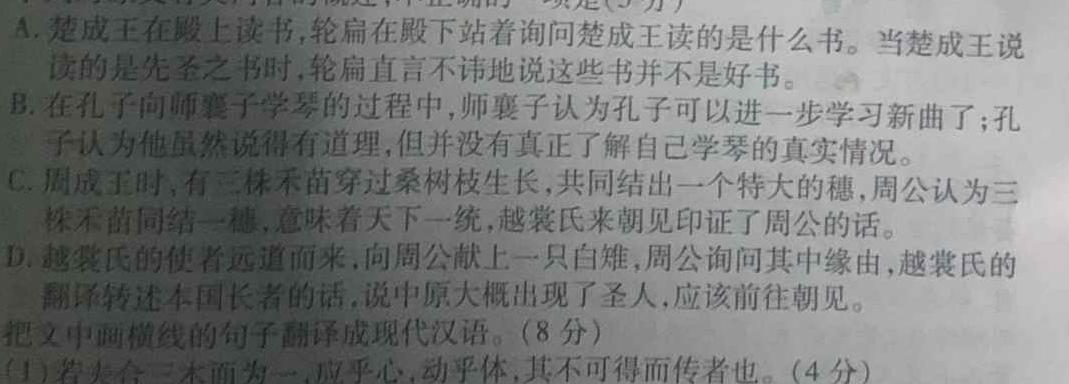 A. 楚成王在殿上读书,轮扁在殿下站着询问楚成王读的是什么书。当楚成王说
读的是先圣之书时,轮扁直言不讳地说这些书并不是好书。
B. 在孔子向师襄子学琴的过程中,师襄子认为孔子可以进一步学习新曲了;孔
子认为他虽然说得有道理,但并没有真正了解自己学琴的真实情况。
C. 周成王时,有三株禾苗穿过桑树枝生长,共同结出一个特大的穗,周公认为三
株禾苗同结一穗,意味着天下一统,越裳氏来朝见印证了周公的话。
D. 越裳氏的使者远道而来,向周公献上一只白雉,周公询问其中缘由,越裳氏的
翻译转述本国长者的话,说中原大概出现了圣人,应该前往朝见。
把文中画横线的句子翻译成现代汉语。(8分)
(1)若夫合三木而为一,应乎心,动乎体,其不可得而传者也。(4分)